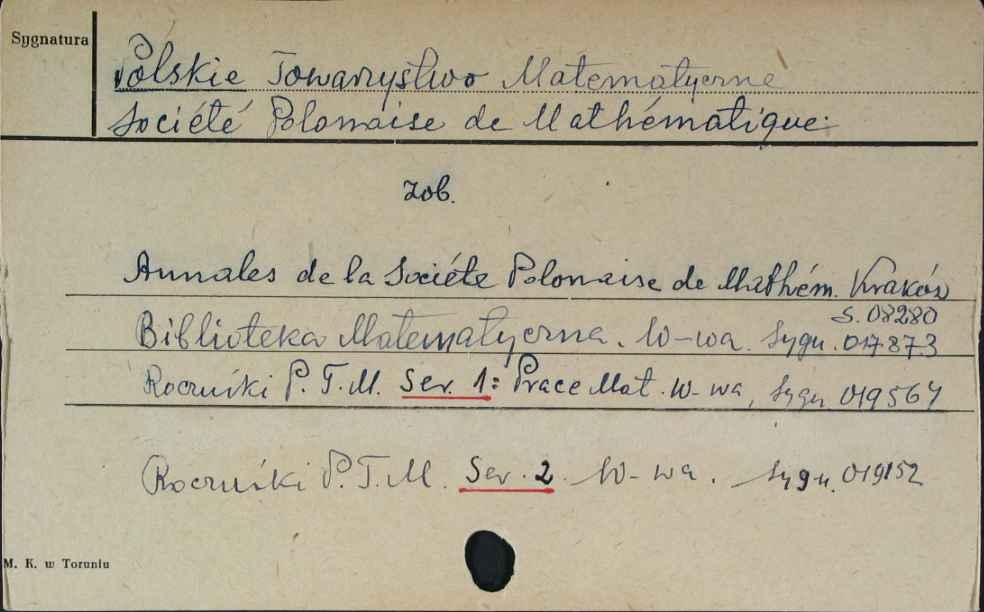 Sygnatura
Polskie Towarzystwo Matematyczne
Société Polonaise de Mathématique.
zob.
Annales de la Société Polonaise de Mathém. Kraków
S. 08280
Biblioteka Matematyczna. W-wa. Sygn. 017873
Roczniki P. T. M. Ser. 1: Prace Mat. W-wa, Sygn 019567
Roczniki P. T. M. Ser. 2. W-wa. Sygn. 019152
M. K. w Toruniu